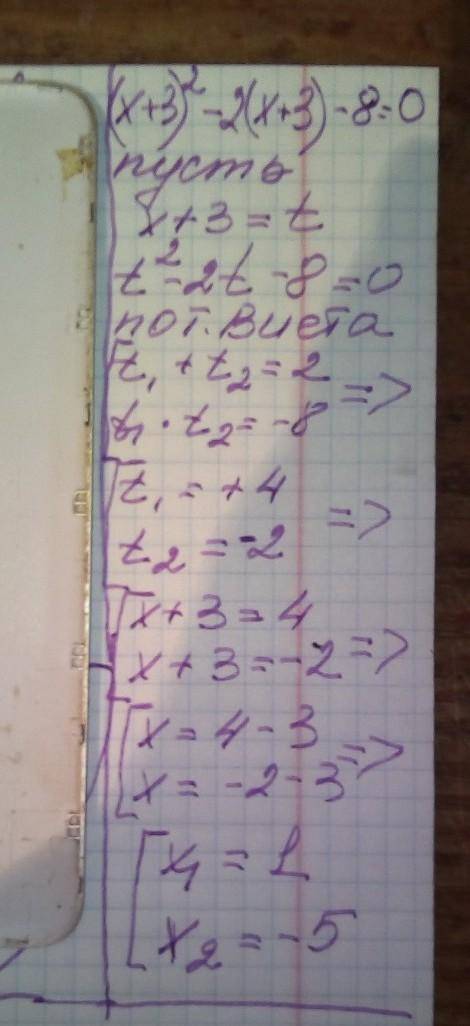 (x+3)² -2(x+3) -8=0
пусть
x+3=t
t²-2t-8=0
по т. Виета
t₁ + t₂ = 2 =>
t₁ · t₂ = -8
t₁ = +4
t₂ = -2 =>
x+3=4
x+3=-2 =>
x = 4-3 =>
x = -2-3
x₁ = 1
x₂ = -5